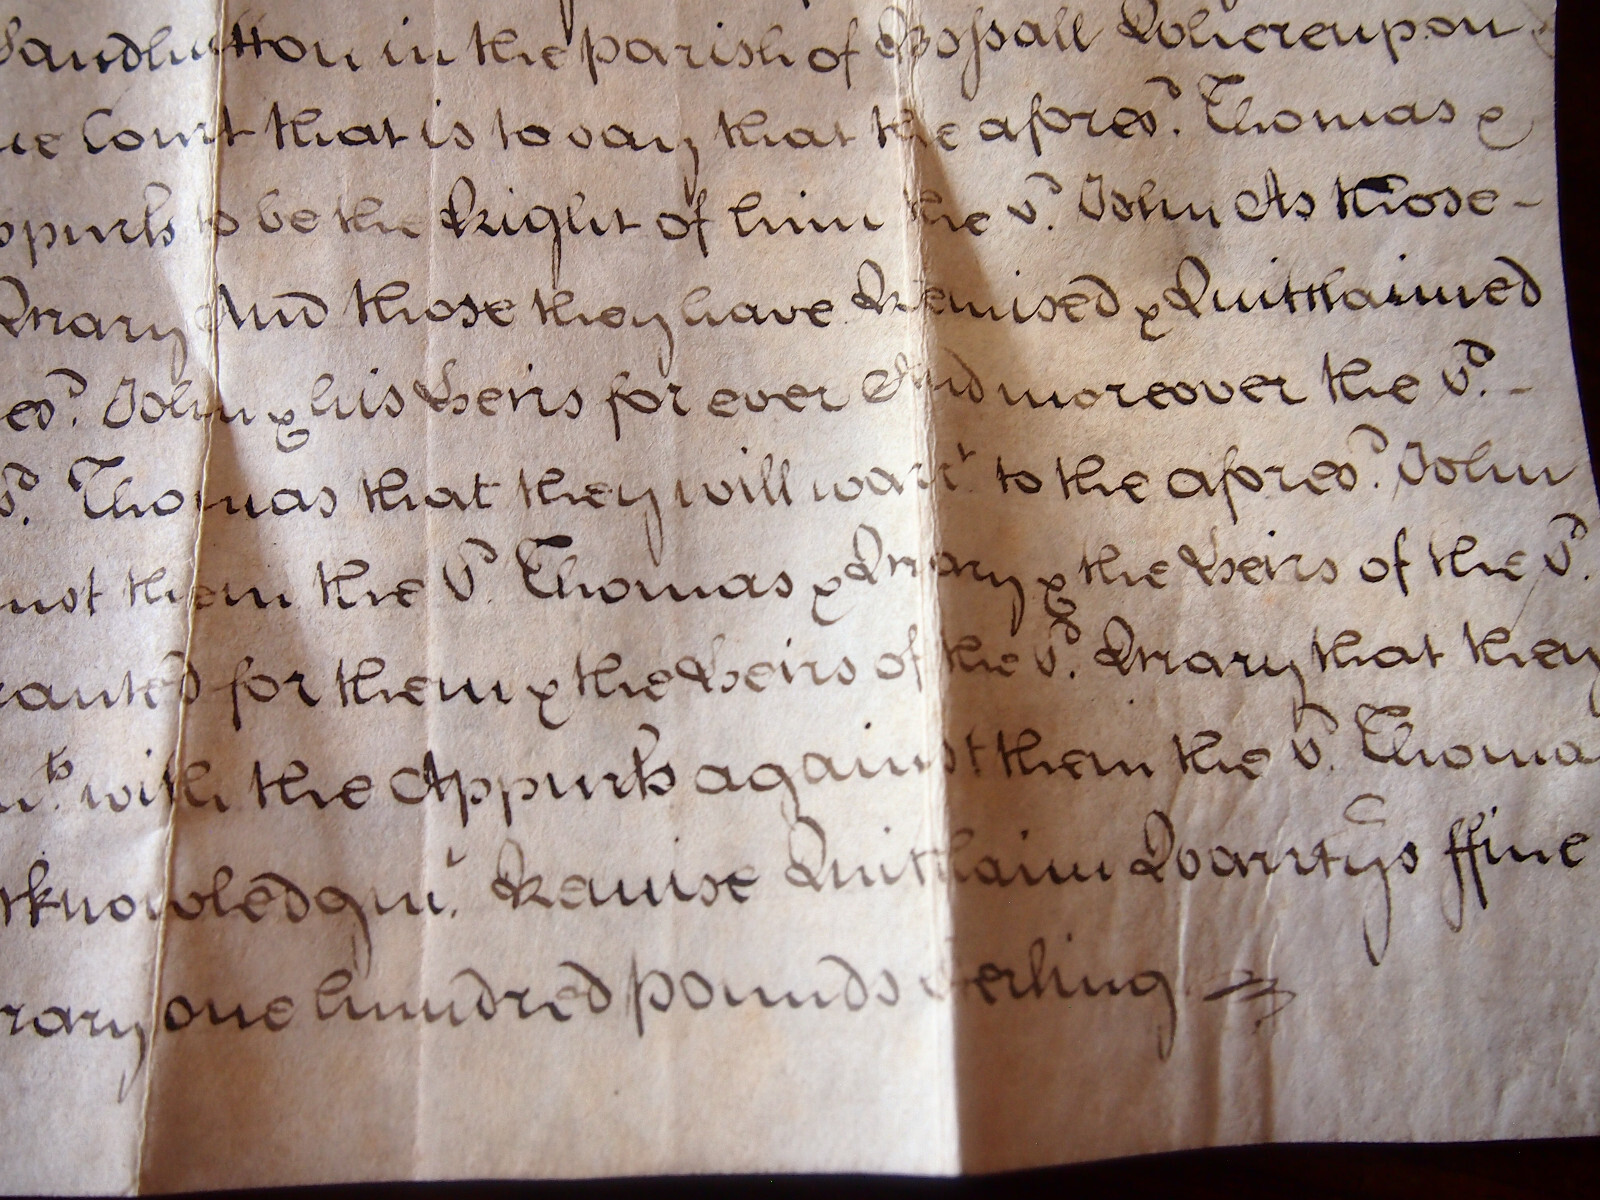 Sandhutton in the parish of Bossall Whereupon
ue Court that is to say that the afores^d. Thomas &
ppurts to be the Right of him the s^d. John As those -
Mary And those they have Remised & Quitclaimed
es^d. John & his Heirs for ever And moreover the s^d. -
s^d. Thomas that they will warr^t. to the afores^d. John
inst them the s^d. Thomas & Mary & the Heirs of the s^d.
ranted for them & the Heirs of the s^d. Mary that they
with the Appurts against them the s^d. Thoma
cknowledgm^t. Remise Quitclaim Warrtys ffine
rary one hundred pounds sterling